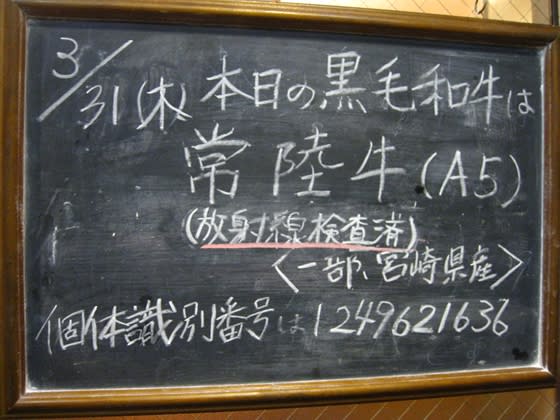 3/31(木) 本日の黒毛和牛は
常陸牛(A5)
(放射線検査済)
<一部、宮崎県産>
個体識別番号は1249621636